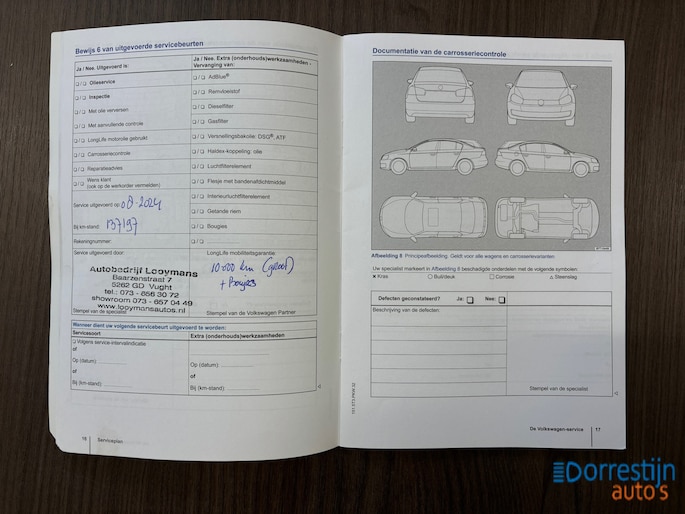 Bewijs 6 van uitgevoerde servicebeurten
Ja / Nee. Uitgevoerd is:
Olieservice
Inspectie
Met olie verversen
Met aanvullende controle
LongLife motorolie gebruikt
Carrosseriecontrole
Reparatieadvies
Wens klant
(ook op de werkorder vermelden)
Service uitgevoerd op: 08-2024
Bij km-stand: 137197
Rekeningnummer:
Service uitgevoerd door:
Autobedrijf Looymans
Baarzenstraat 7
5262 GD Vught
tel.: 073 - 656 30 72
showroom 073 - 657 04 49
www.looymansautos.nl
Stempel van de specialist
Ja / Nee. Extra (onderhouds)werkzaamheden -
Vervanging van:
AdBlue®
Remvloeistof
Dieselfilter
Gasfilter
Versnellingsbakolie: DSG®, ATF
Haldex-koppeling: olie
Luchtfilterelement
Flesje met bandenafdichtmiddel
Interieurluchtfilterelement
Getande riem
Bougies
LongLife mobiliteitsgarantie:
10000 km (groot)
+ Bougies
Stempel van de Volkswagen Partner
Wanneer dient uw volgende servicebeurt uitgevoerd te worden:
Servicesoort:
Volgens service-intervalindicatie
of
Op (datum):
of
Bij (km-stand):
Extra (onderhouds)werkzaamheden
Op (datum):
of
Bij (km-stand):
16 Serviceplan
Documentatie van de carrosseriecontrole
Afbeelding 6 Principeafbeelding. Geldt voor alle wagens en carrosserievarianten.
Uw specialist markeert in Afbeelding 6 beschadigde onderdelen met de volgende symbolen:
× Kras ○ Buil/deuk □ Corrosie △ Steenslag
Defecten geconstateerd? Ja: Nee:
Beschrijving van de defecten:
Stempel van de specialist
De Volkswagen-service 17
Dorrestijn
auto's